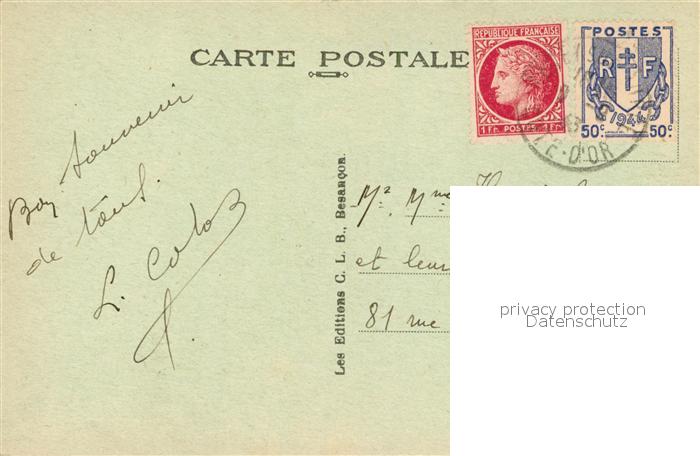 CARTE POSTALE
REPUBLIQUE FRANÇAISE
1Fr. POSTES 1Fr.
POSTES
R F
1944
50c 50c
E-D'OR
Bon souvenir
de tous.
Les Editions C. L. B., Besançon.
Mr Mme
et leur
81 rue
privacy protection
Datenschutz